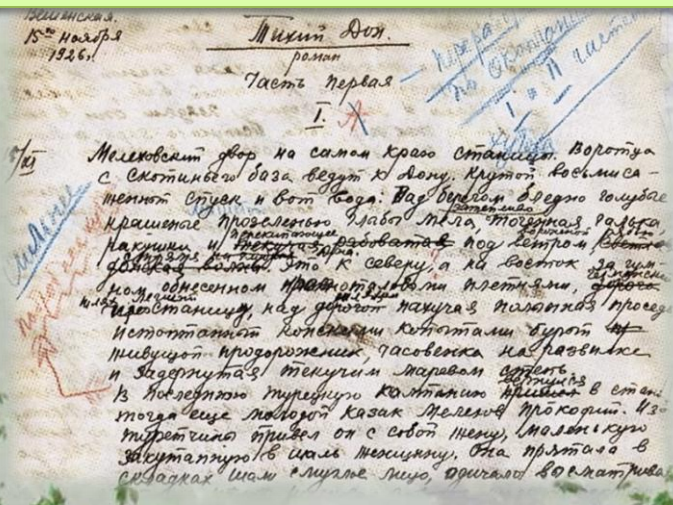 Вешенская.
15го ноября
1926г.
Тихий Дон.
роман
Часть первая
I.
— перера
по окончании
I и II частей
5/XI
Мелеховский двор на самом краю станицы. Воротца
с скотиньего база ведут к Дону. Крутой восьмиса-
женный спуск и вот вода. Над берегом бледно голубые
крашеные прозеленью глабы мела,
ракушки и текучая рябоватая под ветром
донская волна. Это к северу, а на восток за гум-
ном, обнесенном красноталовыми плетнями, дорога
над дорогой пахучая полынная просед
истоптанный конскими копытами бурый
живущой продорожник, часовенка на развилке
и задернутая текучим маревом степь.
вернулся
В последнюю турецкую кампанию пришел в стан
тогда еще молодой казак Мелехов Прокофий. Из
туретчины привел он с собой жену, маленькую
закутанную в шаль женщину. Она прятала в
складках шали смуглое лицо, одичало восматрива